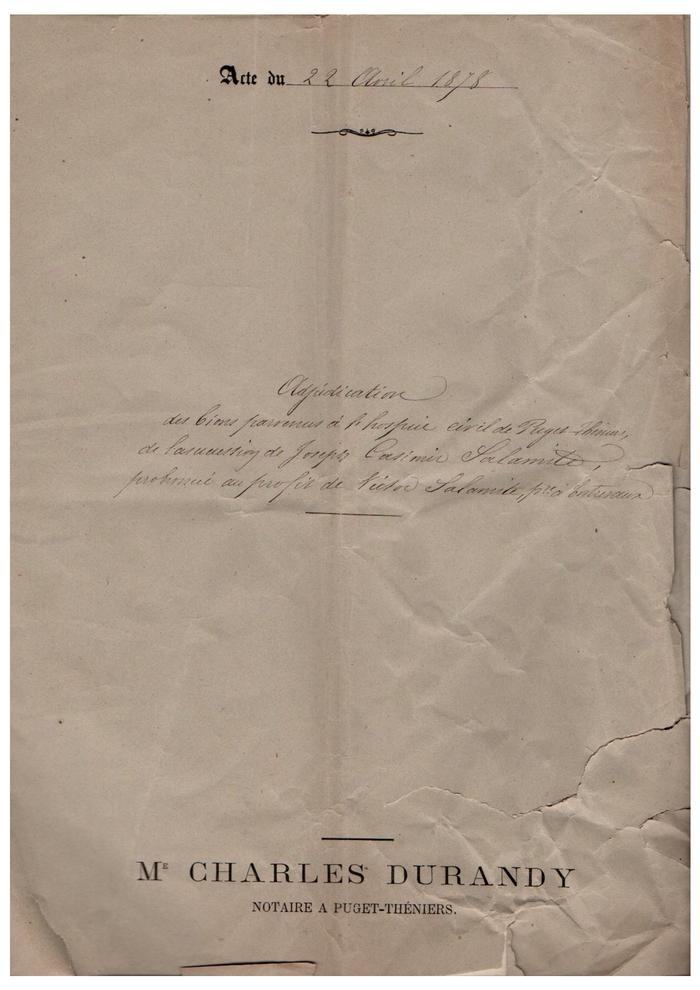 Acte du 22 Avril 1878
Adjudication
des biens parvenus à l'hospice civil de Puget-Théniers,
de la succession de Joseph Casimir Salamite,
prononcé au profit de Victor Salamite, pre à Entrevaux
Me CHARLES DURANDY
NOTAIRE A PUGET-THÉNIERS.